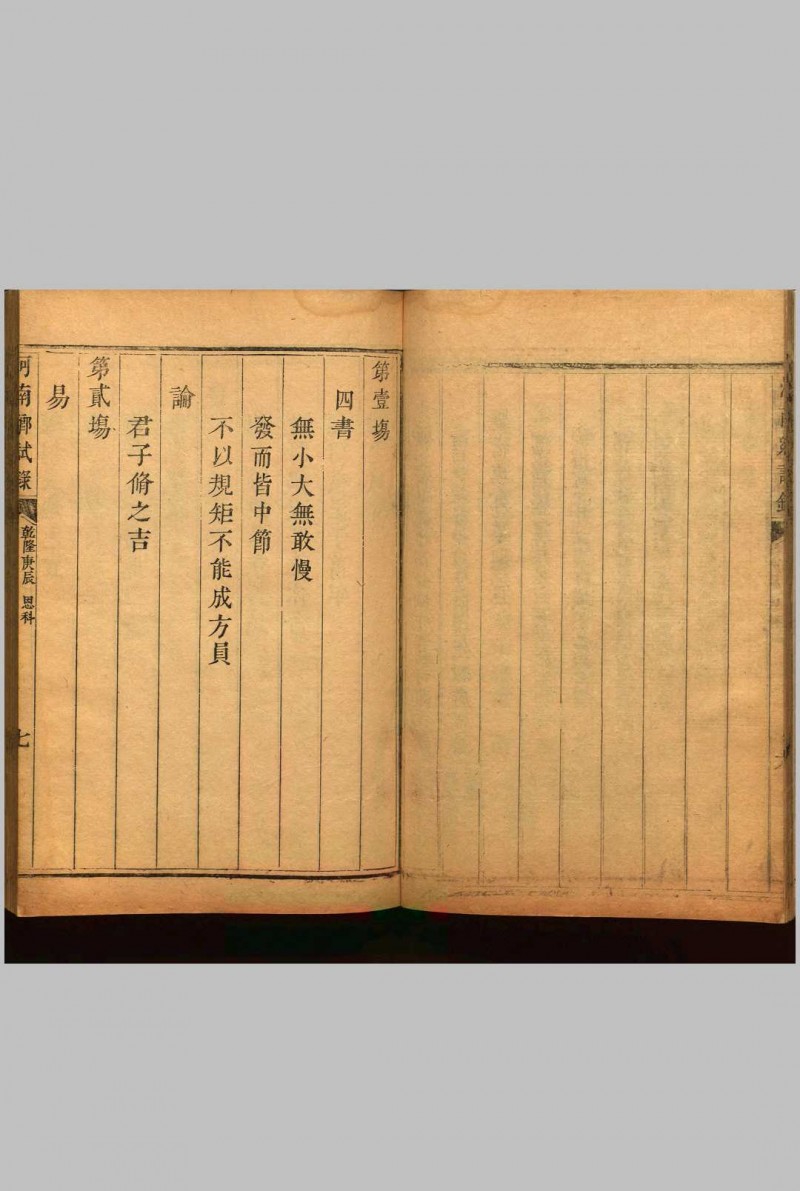 第壹塲
四書
無小大無敢慢
發而皆中節
不以規矩不能成方員
論
君子脩之吉
第貳塲
易
河南鄉試錄
乾隆庚辰 恩科
七